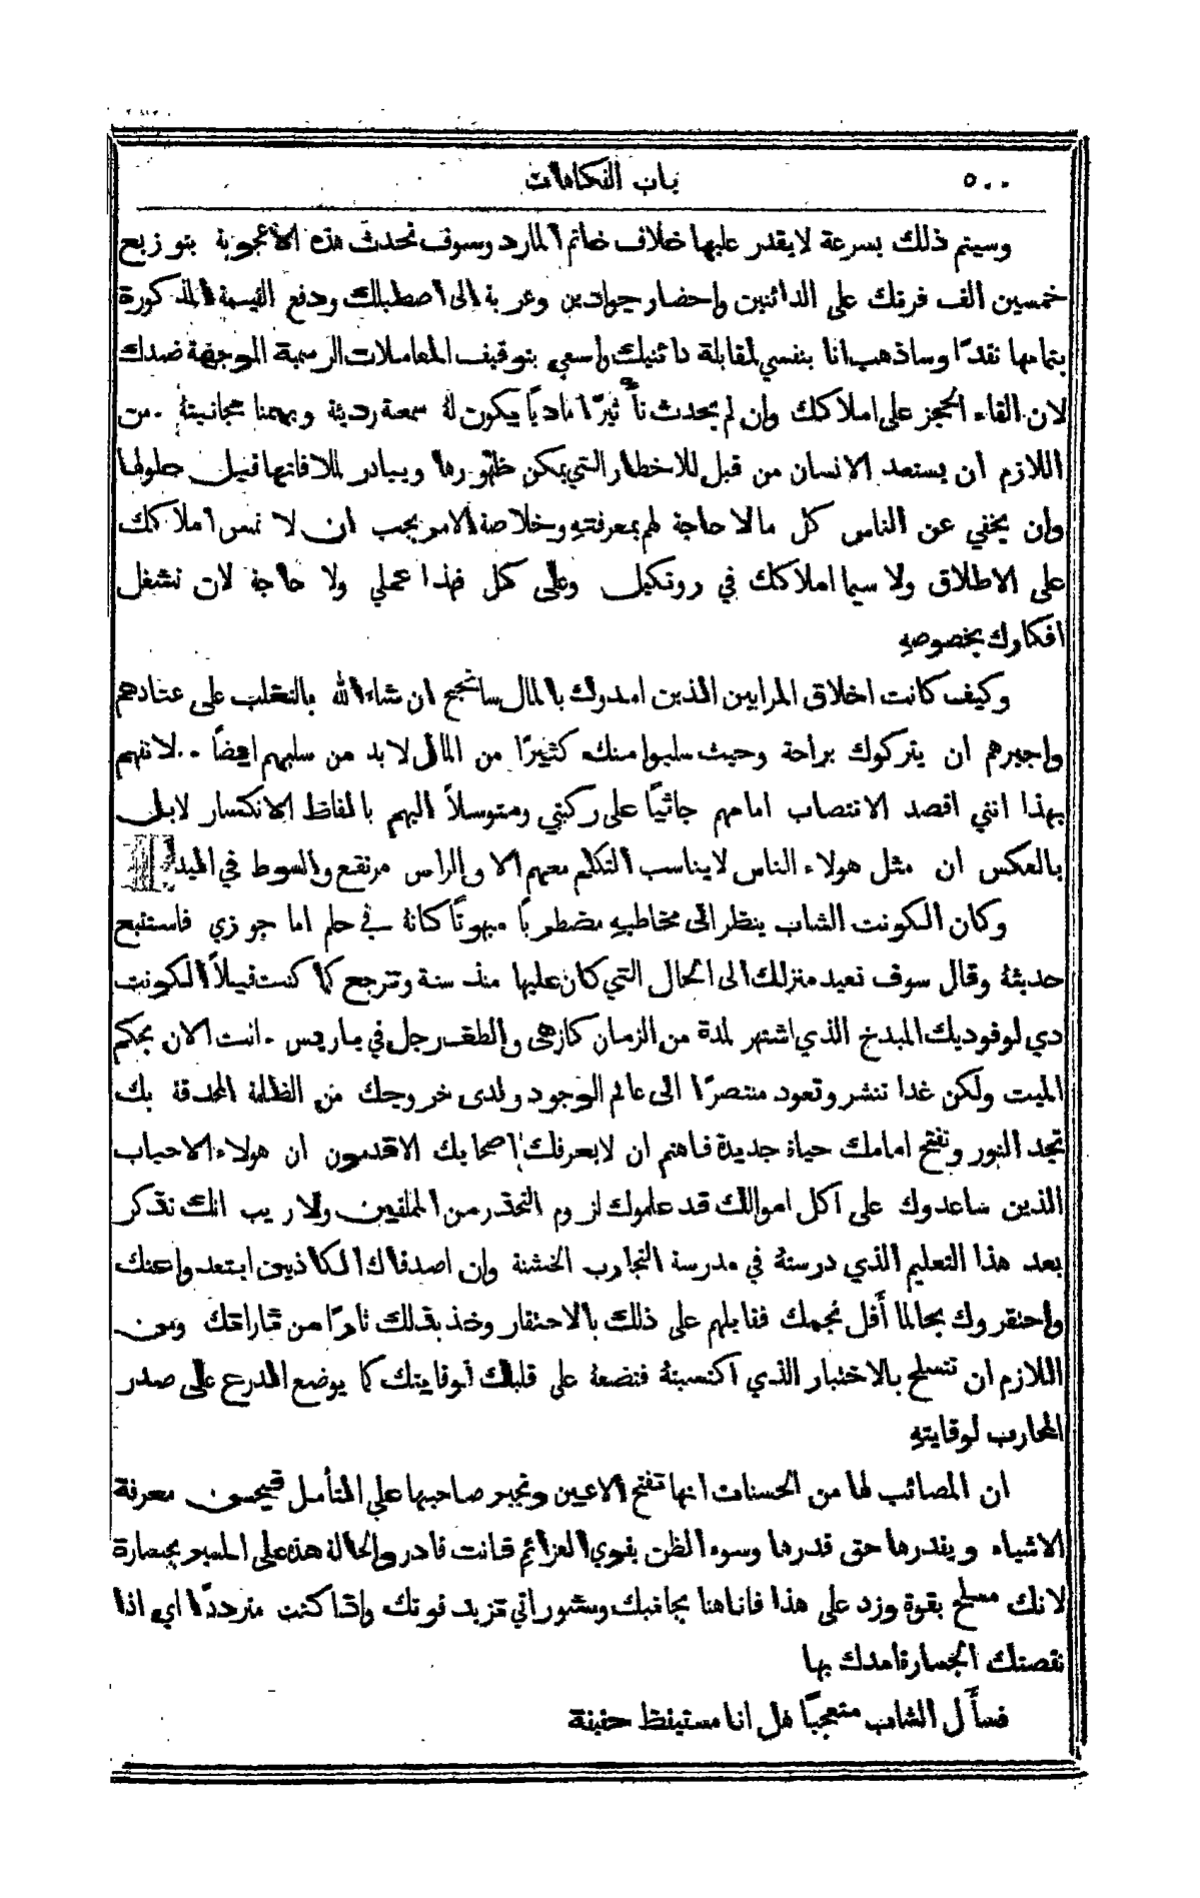 ٥٠٠ باب الفكاهات
وسيتم ذلك بسرعة لا يقدر عليها خلاف خاتم المارد وسوف تحدث هذه الاعجوبة بتوزيع
خمسين الف فرنك على الدائنين وإحضار جوادين وعربة الى اصطبلك ودفع القيمة المذكورة
بتمامها نقدًا وساذهب انا بنفسي لمقابلة دائنيك واسعي بتوقيف المعاملات الرسمية الموجهة ضدك
لان القاء الحجز على املاكك وإن لم يحدث تأثيرًا ماديًا يكون لهُ سمعة ردية ويهمنا مجانبتهُ . من
اللازم ان يستعد الانسان من قبل للاخطار التي يمكن ظهورها ويبادر لملافاتها قبل حلولها
وإن يخفي عن الناس كل ما لا حاجة لهم بمعرفتهِ وخلاصة الامر يجب ان لا تمس املاكك
على الاطلاق ولا سيما املاكك في رونكيل وعلى كل فهذا عملي ولا حاجة لان تشغل
افكارك بخصوصهِ
وكيف كانت اخلاق المرابين الذين امدوك بالمال سانجح ان شاء الله بالتغلب على عنادهم
واجبرهم ان يتركوك براحة وحيث سلبوا منك كثيرًا من المال لا بد من سلبهم ايضًا . . لا تفهم
بهذا انني اقصد الانتصاب امامهم جاثيًا على ركبتي ومتوسلاً اليهم بالفاظ الانكسار لا بل
بالعكس ان مثل هولاء الناس لا يناسب التكلم معهم الا والراس مرتفع والسوط في اليد
وكان الكونت الشاب ينظر الى مخاطبهِ مضطربًا مبهوتًا كانهُ في حلم اما جوزي فاستتبع
حديثهُ وقال سوف نعيد منزلك الى الحال التي كان عليها منذ سنة وترجع كما كنت قبلاً الكونت
دي لوفوديك المبدخ الذي اشتهر لمدة من الزمان كازهى والطف رجل في باريس . انت الان بحكم
الميت ولكن غدا تنشر وتعود منتصرًا الى عالم الوجود ولدى خروجك من الظلمة المحدقة بك
تجد النور وتفتح امامك حياة جديدة فاهتم ان لا يعرفك اصحابك الاقدمون ان هولاء الاحباب
الذين ساعدوك على اكل اموالك قد علموك لزوم التحذر من الملقين ولا ريب انك تذكر
بعد هذا التعليم الذي درستهُ في مدرسة التجارب الخشنة وإن اصدقاك الكاذبين ابتعدوا عنك
واحتقروك بحالما أَفل نجمك فقابلهم على ذلك بالاحتقار وخذ بذلك ثارًا من ثاراتك ومن
اللازم ان تتسلح بالاختبار الذي اكتسبتهُ فتضعهُ على قلبك لوقايتك كما يوضع الدرع على صدر
المحارب لوقايتهِ
ان المصائب لها من الحسنات انها تفتح الاعين وتجبر صاحبها على التأمل فيحسن معرفة
الاشياء ويقدرها حق قدرها وسوء الظن يقوي العزائم فانت قادر والحالة هذه على المسير بجسارة
لانك مسلح بقوة وزد على هذا فانا هنا بجانبك ومشوراتي تزيد قوتك وإذا كنت مترددًا اي اذا
نقصتك الجسارة امدك بها
فسأَل الشاب متعجبًا هل انا مستيقظ حقيقة